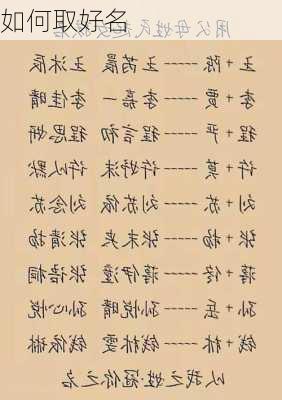 如何取好名
用父母姓氏起
王 + 陈 ----- 王晨茵 王沐辰
李 + 贾 ----- 李嘉一 李佳晴
程 + 严 ----- 程言初 程思妍
许 + 莫 ----- 许妤沫 许以默
刘 + 苏 ----- 刘苏依 刘念苏
张 + 杨 ----- 张未央 张清扬
蒋 + 佟 ----- 蒋伊潼 蒋语桐
孙 + 岳 ----- 孙悦晴 孙心悦
钱 + 林 ----- 钱林雯 钱依琳
以我之姓.冠你之名